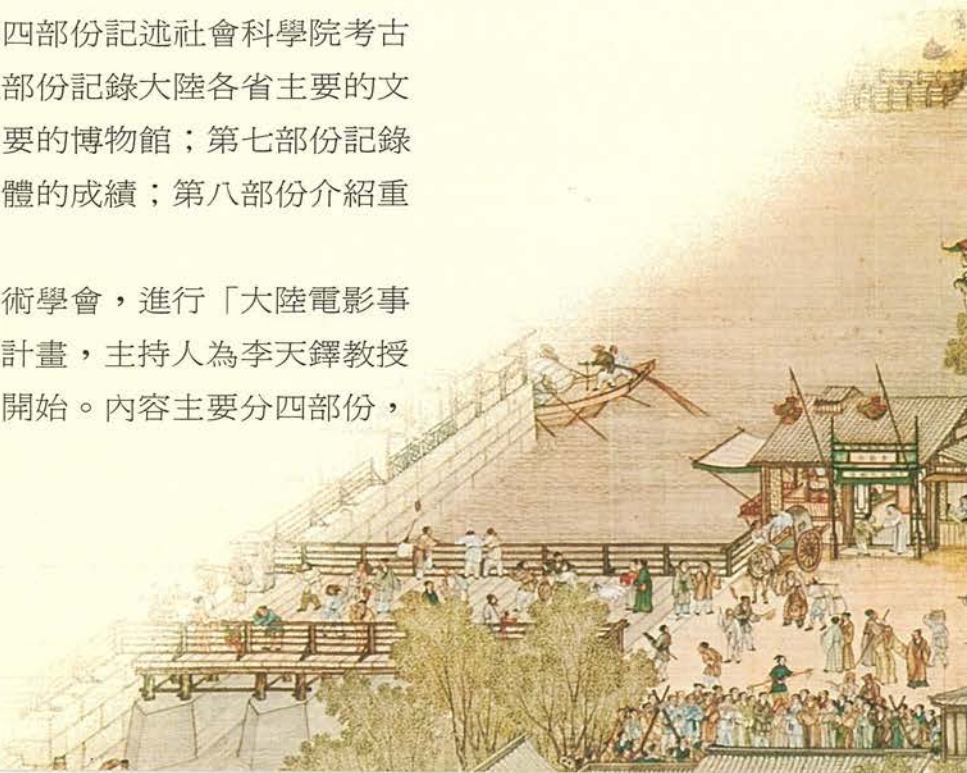 四部份記述社會科學院考古
部份記錄大陸各省主要的文
要的博物館；第七部份記錄
體的成績；第八部份介紹重
術學會，進行「大陸電影事
計畫，主持人為李天鐸教授
開始。內容主要分四部份，